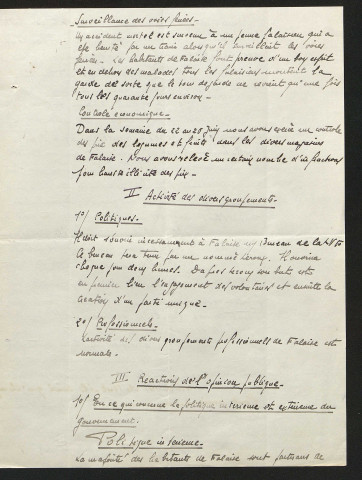 Surveillance des voies ferrées.-
Un accident mortel est survenu à un jeune falaisien qui a
été heurté par un train alors qu'il surveillait les voies
ferrées. - Les habitants de Falaise font preuve d'un bon esprit
et en dehors des malades tous les falaisiens montent la
garde de sorte que le tour de garde ne revient qu'une fois
tous les quarante jours environ. -
Contrôle économique. -
Dans la semaine du 22 au 28 Juin nous avons exercé un contrôle
des prix des légumes et fruits dans les divers magasins
de Falaise. Nous avons relevé un certain nombre d'infractions
pour hausse illicite des prix. -
II Activité des divers groupements. -
1°/ Politiques. -
Il doit s'ouvrir incessamment à Falaise un bureau de la LVF
Ce bureau sera tenu par un nommé Leroy. Il ouvrira
chaque jour deux heures. D'après Leroy son but est
en premier lieu l'engagement des volontaires et ensuite la
création d'un parti unique. -
2°/ Professionnels. -
L'activité des divers groupements professionnels de Falaise est
normale. -
III - Réactions de l'opinion publique. -
1°/ En ce qui concerne la politique intérieure et extérieure du
Gouvernement. -
Politique intérieure. -
La majorité des habitants de Falaise sont partisans de